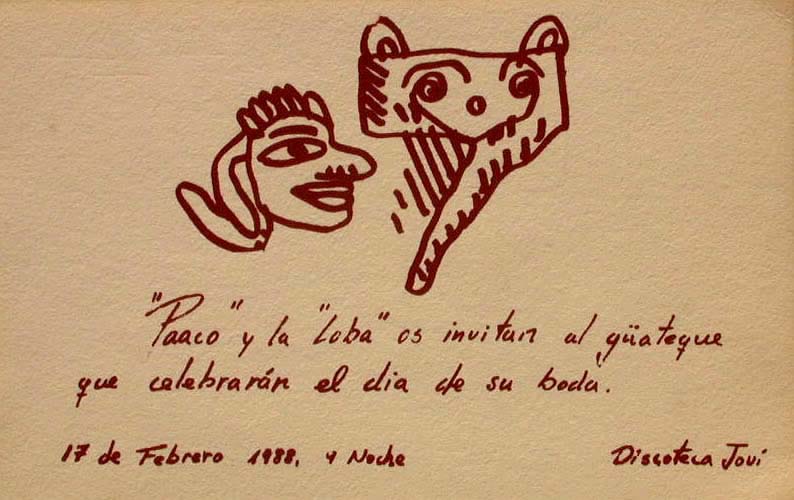 "Paaco" y la "Loba" os invitan al güateque
que celebrarán el dia de su boda.
17 de Febrero 1988, 4 Noche
Discoteca Joui